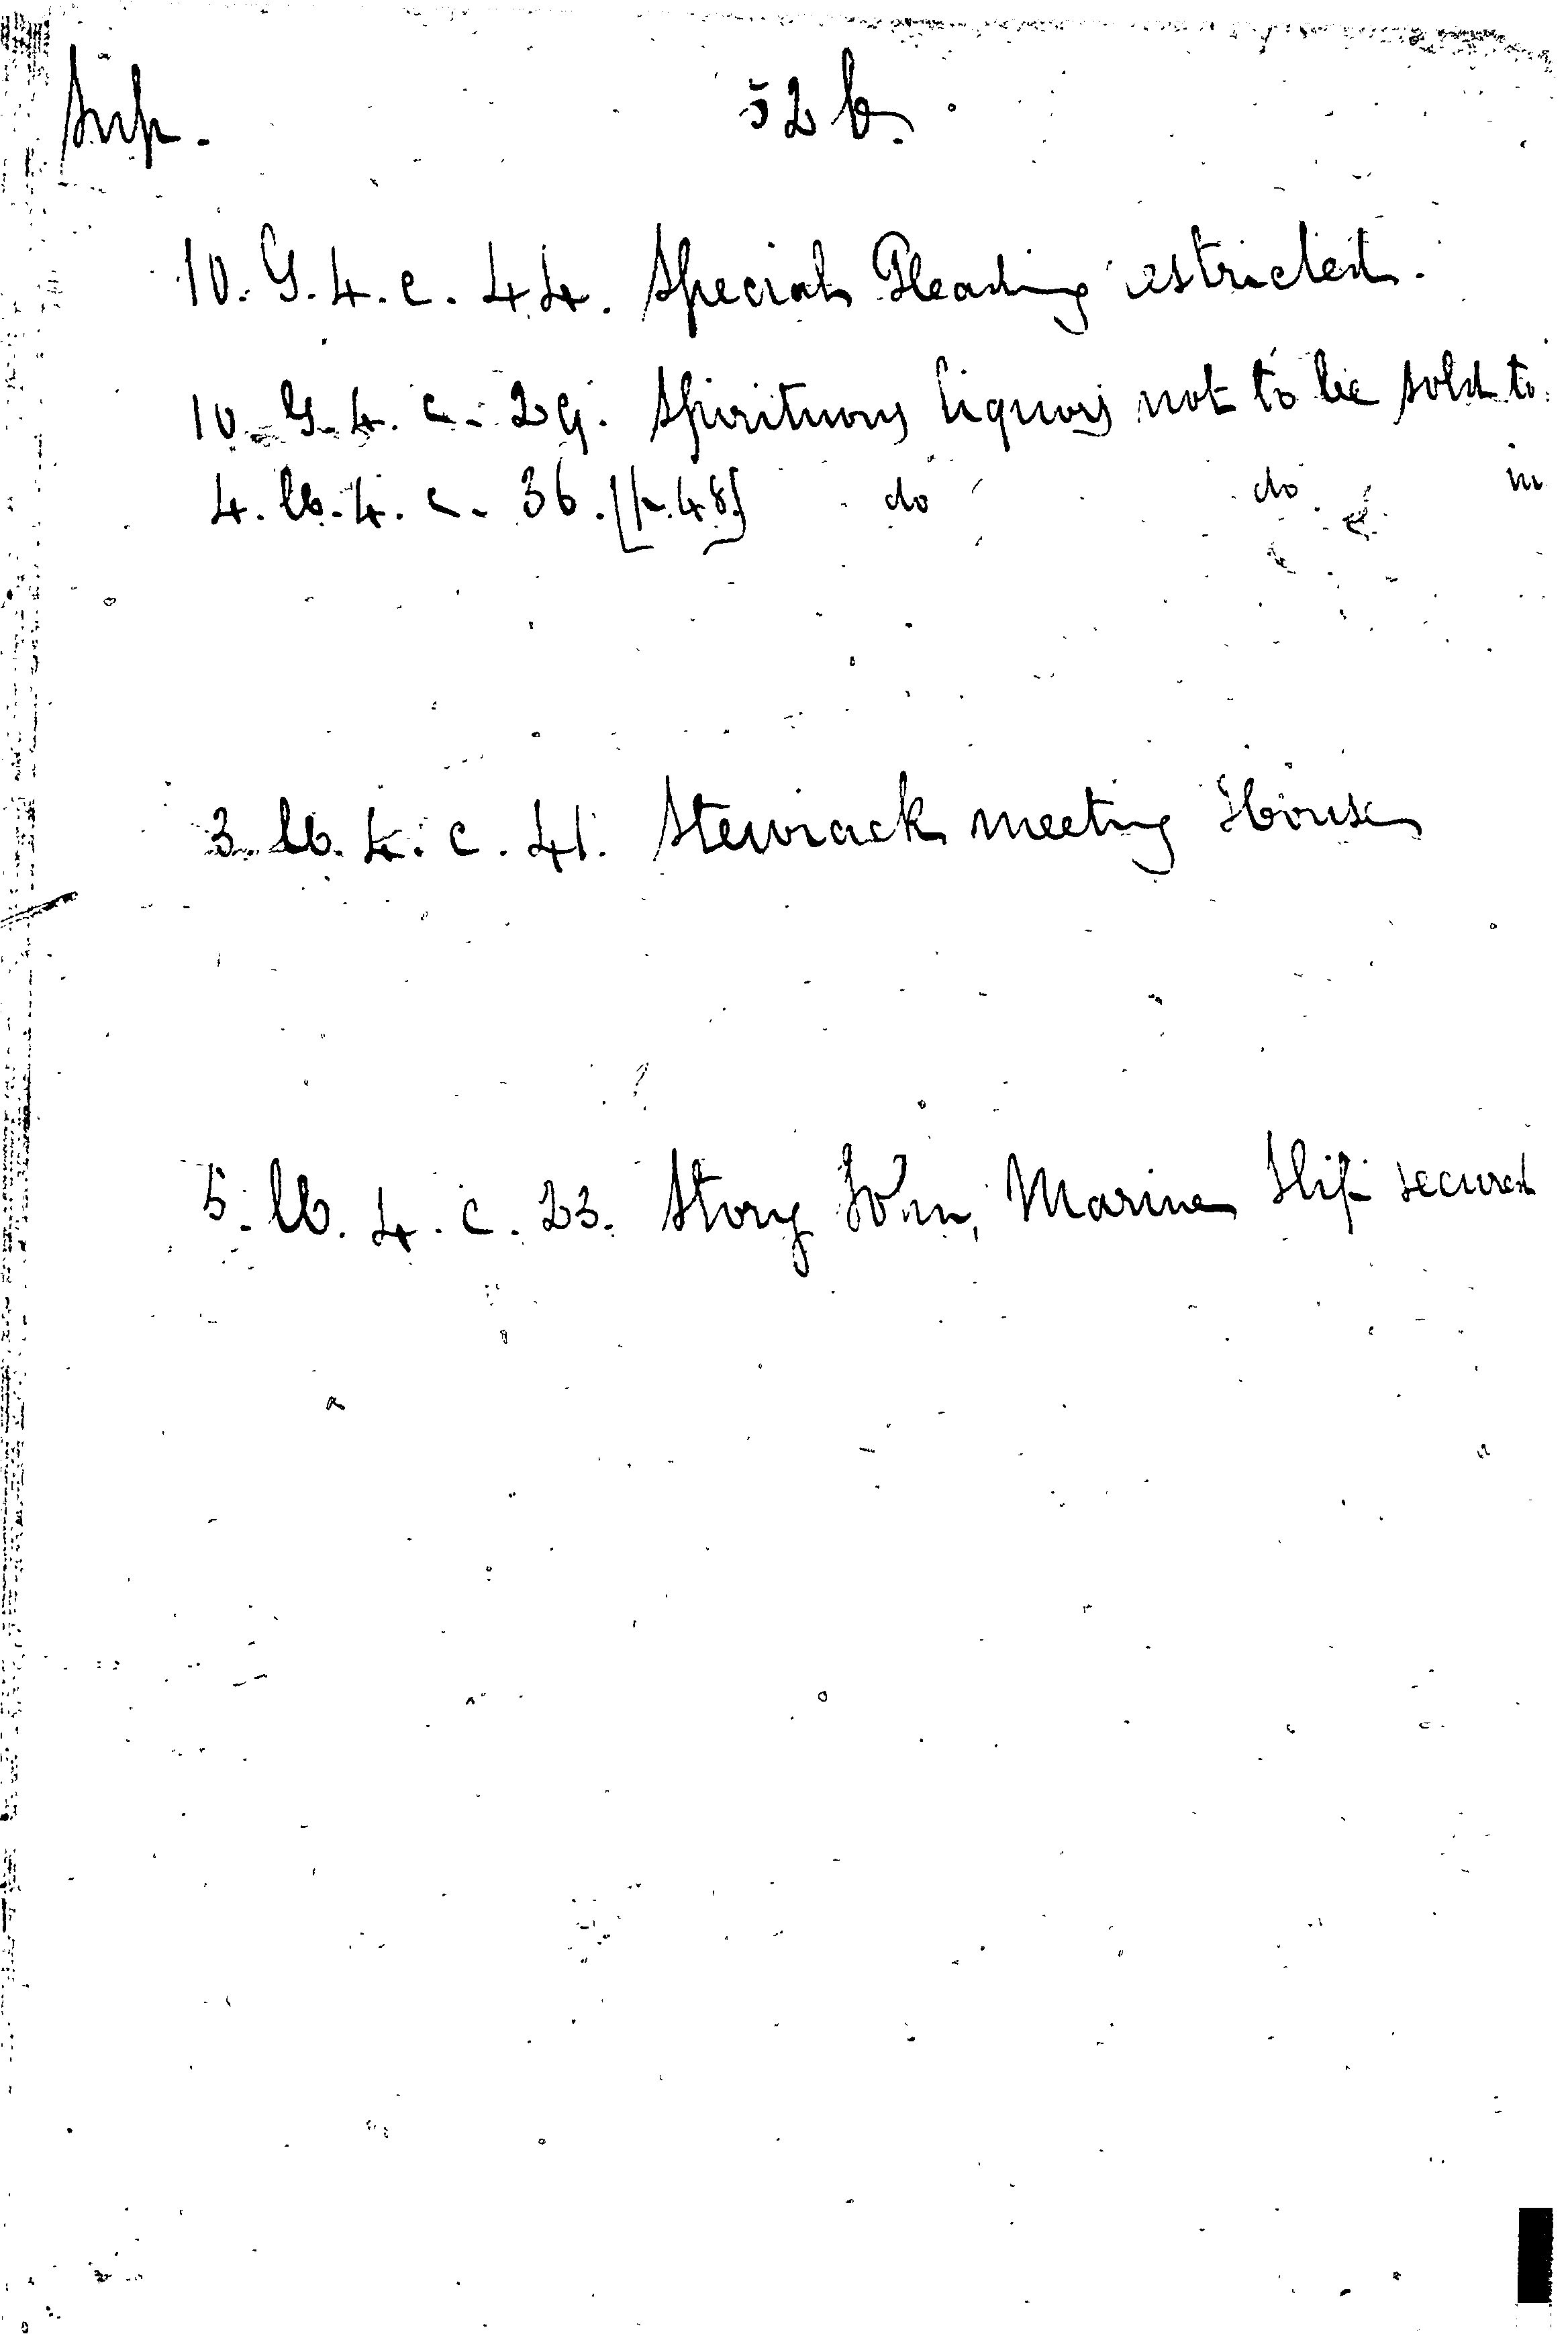 Sup. 52 b.
10. G. 4. c. 44. Special Pleading restricted.
10. G. 4. c. 29. Spirituous liquors not to be sold to
4. W. 4. c. 36. [p. 48] do do in
3. W. 4. c. 41. Stewiack meeting House
5. W. 4. c. 23. Story Wm, Marine Slip secured